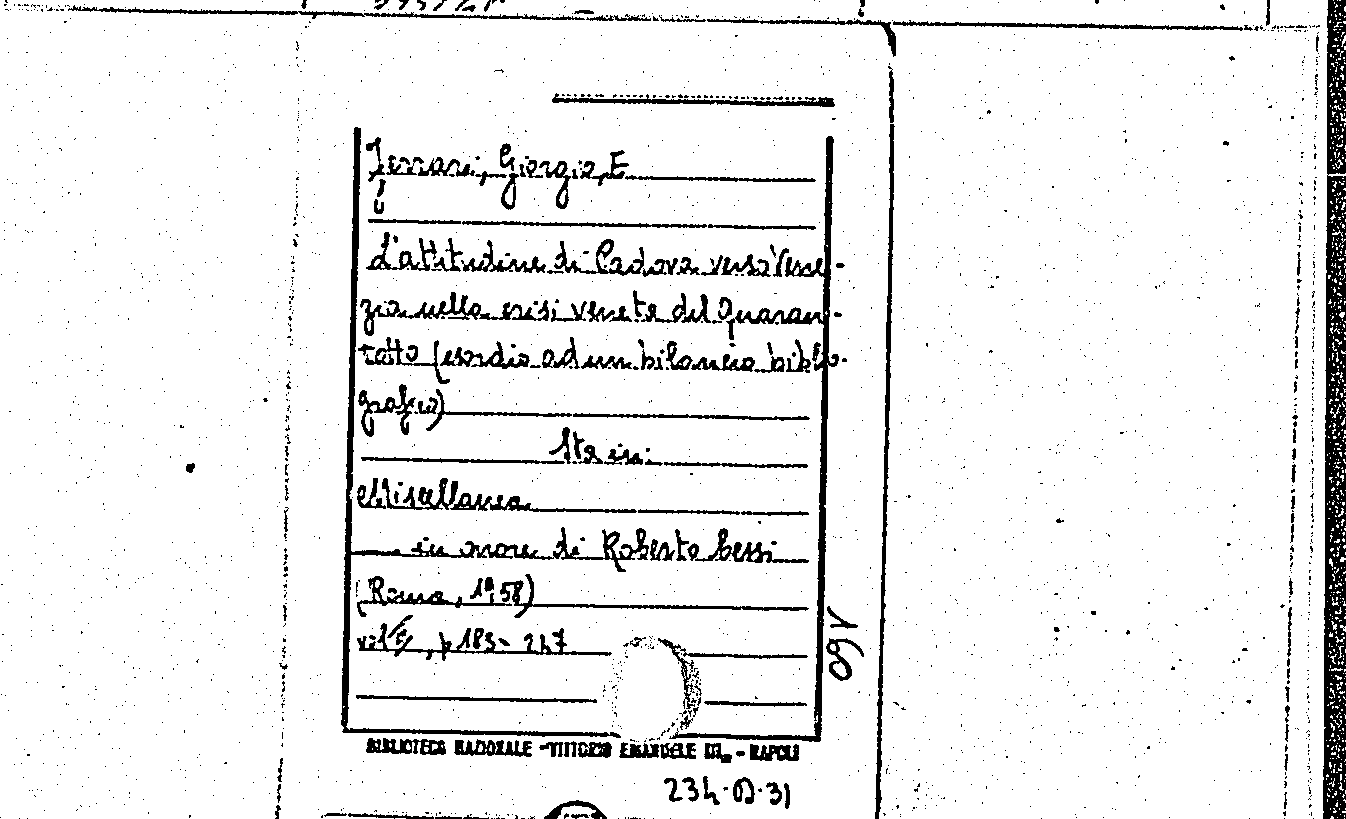 Ferrari, Giorgio, E
L'attitudine di Padova verso Vene-
zia nella crisi veneta del Quaran-
totto (esordio ad un bilancio biblio-
grafico)
Sta in:
Miscellanea
in onore di Roberto Cessi
(Roma, 1958)
p 183- 247
160
BIBLIOTECA NAZIONALE "VITTORIO EMANUELE III" - NAPOLI